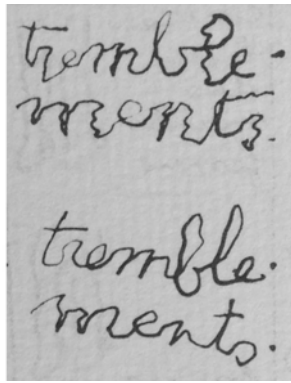 tremble-
ments.
tremble.
ments.